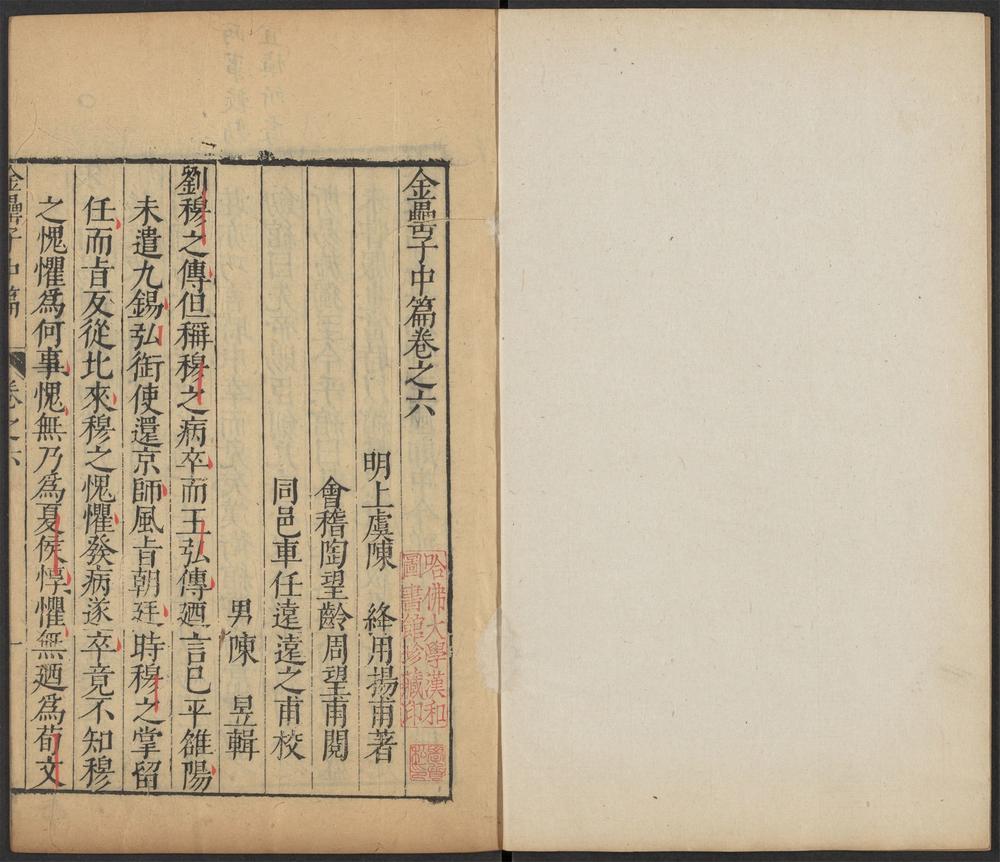 金罍子中篇卷之六
明上虞陳　絳用揚甫著
會稽陶望齡周望甫閱
同邑車任遠遠之甫校
男陳　昱輯
劉穆之傳但稱穆之病卒而王弘傳廼言巳平雒陽
未遣九錫弘銜使還京師風㫖朝廷時穆之掌留
任而㫖反從北來穆之愧懼發病遂卒竟不知穆
之愧懼爲何事愧無乃爲夏侯惇懼無廼爲荀文
金罍子中篇
卷之六
一
哈佛大學漢和
圖書館珍藏印